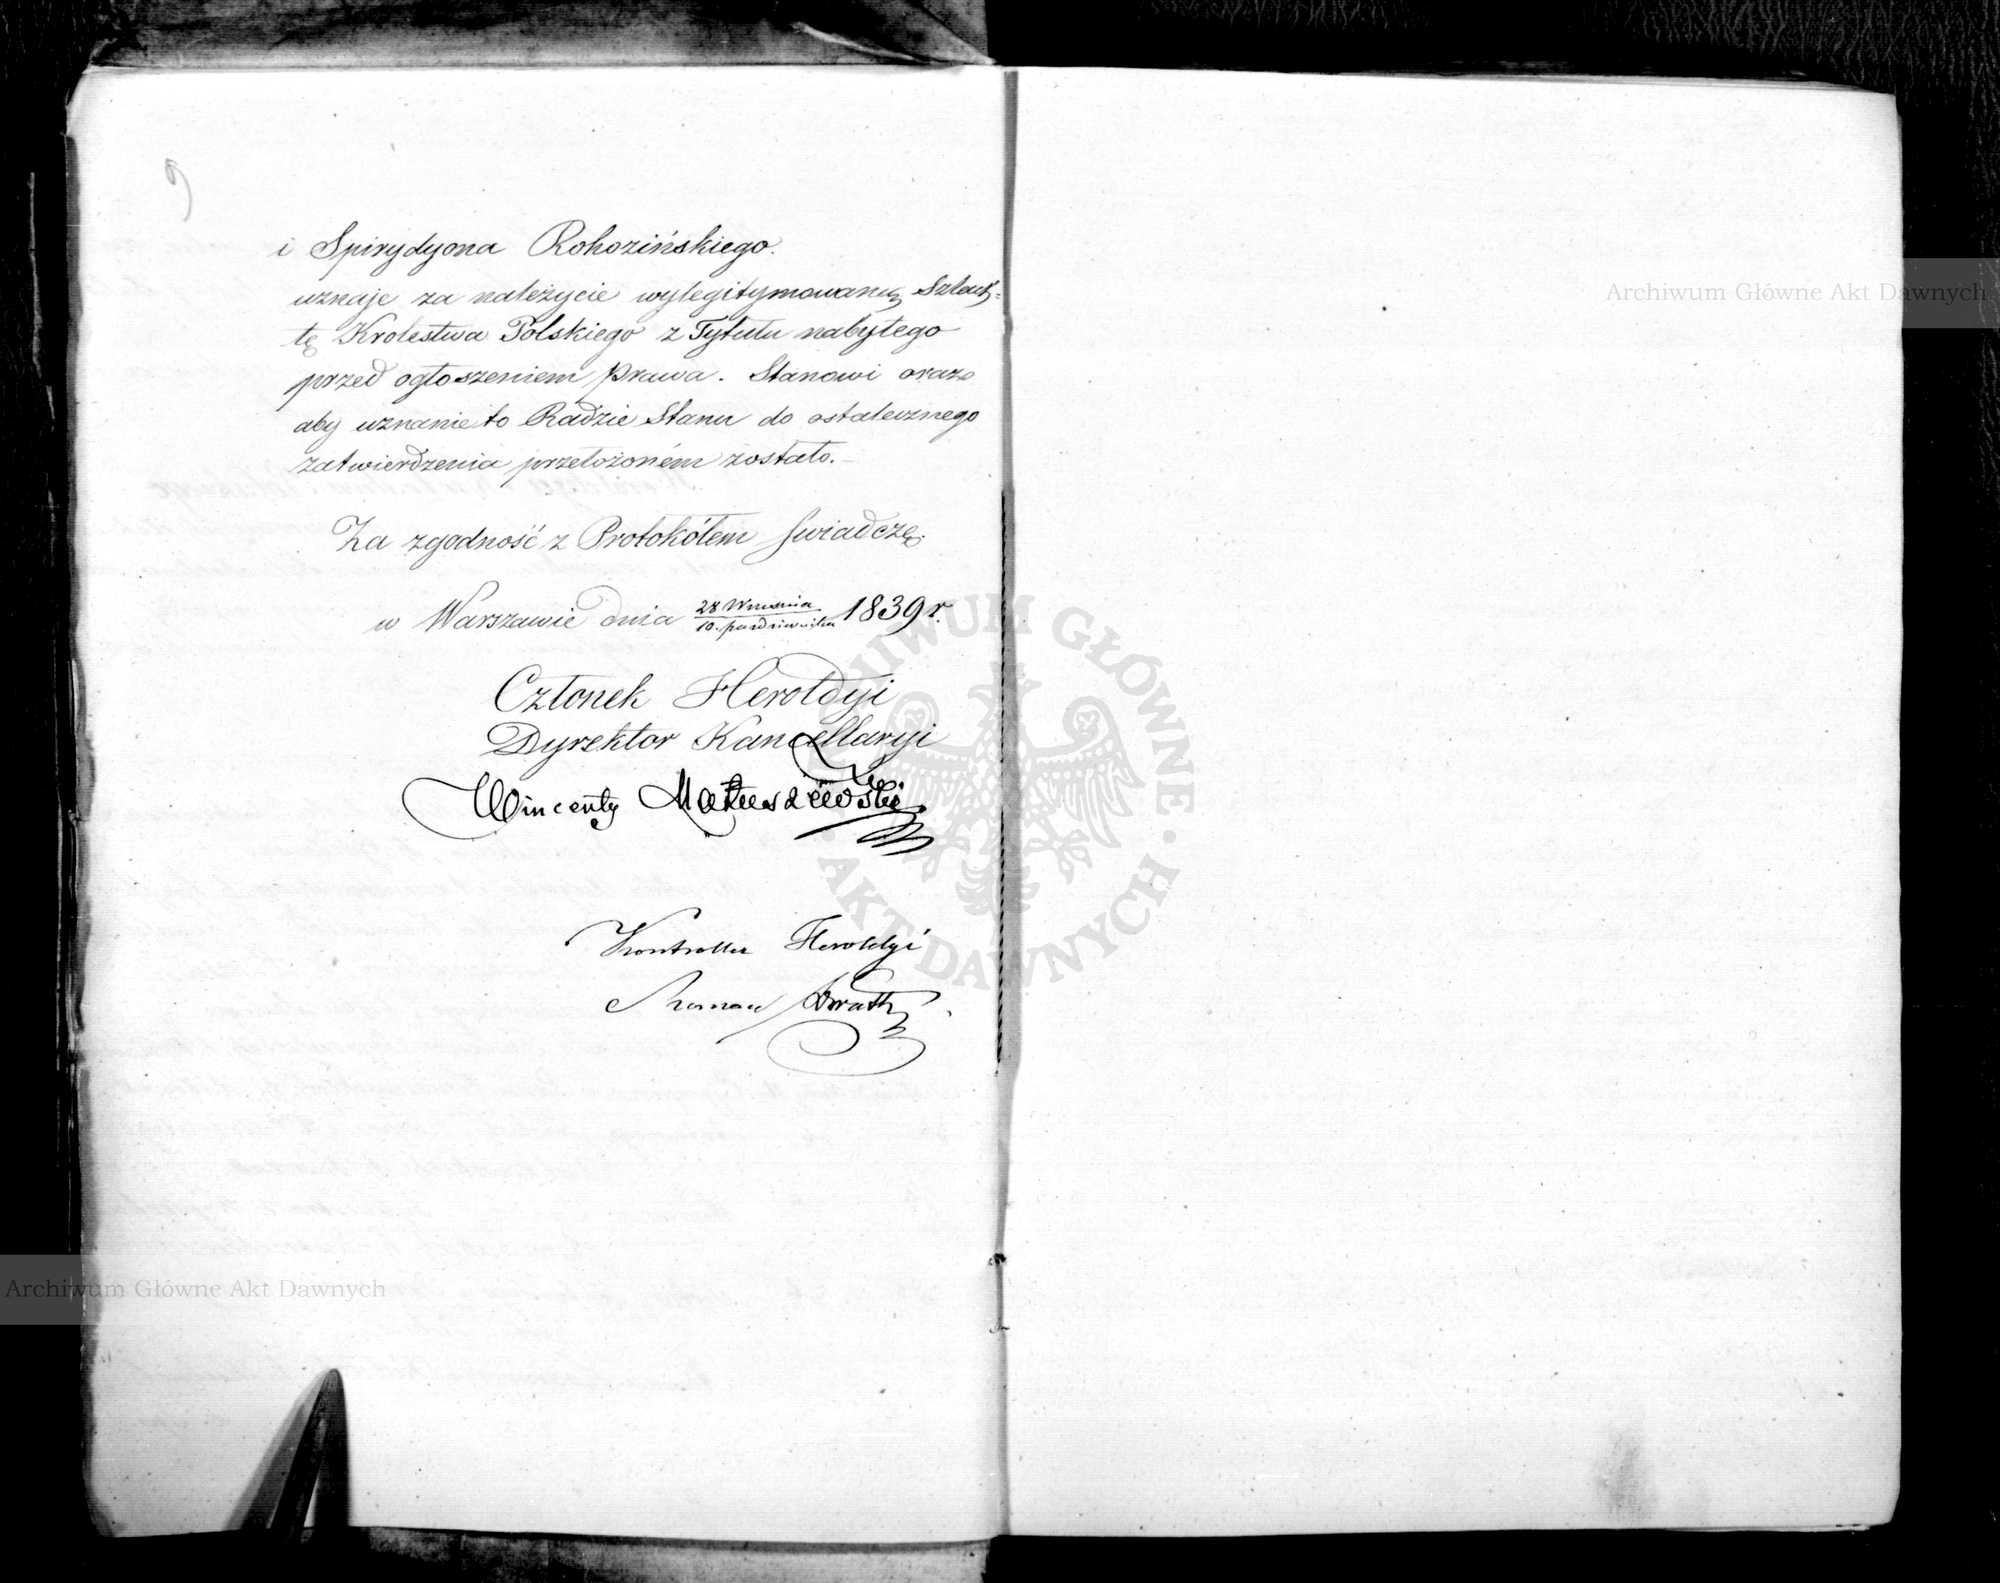 i Spirydyona Rohozińskiego.
uznaje za należycie wylegitymowaną Szlach=
tę Krolestwa Polskiego z Tytułu nabytego
przed ogłoszeniem Prawa. Stanowi oraz
aby uznanie to Radzie Stanu do ostatecznego
zatwierdzenia przełożoném zostało.—
Za zgodność z Protokółem świadczę.
w Warszawie dnia 28 Września / 10. października 1839 r.
Członek Heroldyi
Dyrektor Kancellaryi
Wincenty Matuszewski
Kontroller Heroldyi
Roman
Archiwum Główne Akt Dawnych
Archiwum Główne Akt Dawnych
ARCHIWUM GŁÓWNE · AKT DAWNYCH ·